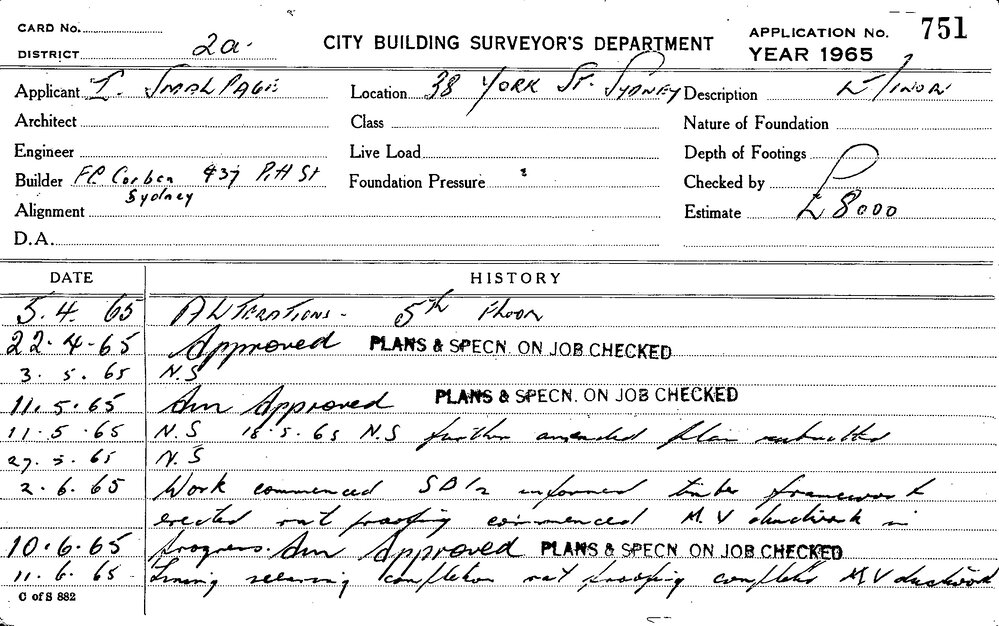 CARD No.
DISTRICT 2a.
CITY BUILDING SURVEYOR'S DEPARTMENT
APPLICATION No. 751
YEAR 1965
Applicant I. SMALPAGE
Location 38 YORK ST. SYDNEY
Description
Architect
Class
Nature of Foundation
Engineer
Live Load
Depth of Footings
Builder FC Corben 437 Pitt St
Sydney
Foundation Pressure
Checked by
Alignment
Estimate £8000
D.A.
DATE HISTORY
5.4.65 ALTERATIONS - 5th FLOOR
22.4.65 Approved PLANS & SPECN. ON JOB CHECKED
3.5.65 N.S
11.5.65 Am Approved PLANS & SPECN. ON JOB CHECKED
11.5.65 N.S 18.5.65 N.S further amended plan submitted
27.5.65 N.S
2.6.65 Work commenced informed timber framework
erected rat proofing commenced M.V ductwork in
10.6.65 progress. Am Approved PLANS & SPECN. ON JOB CHECKED
11.6.65 Lining nearing completion rat proofing complete M.V ductwork
C of S 882